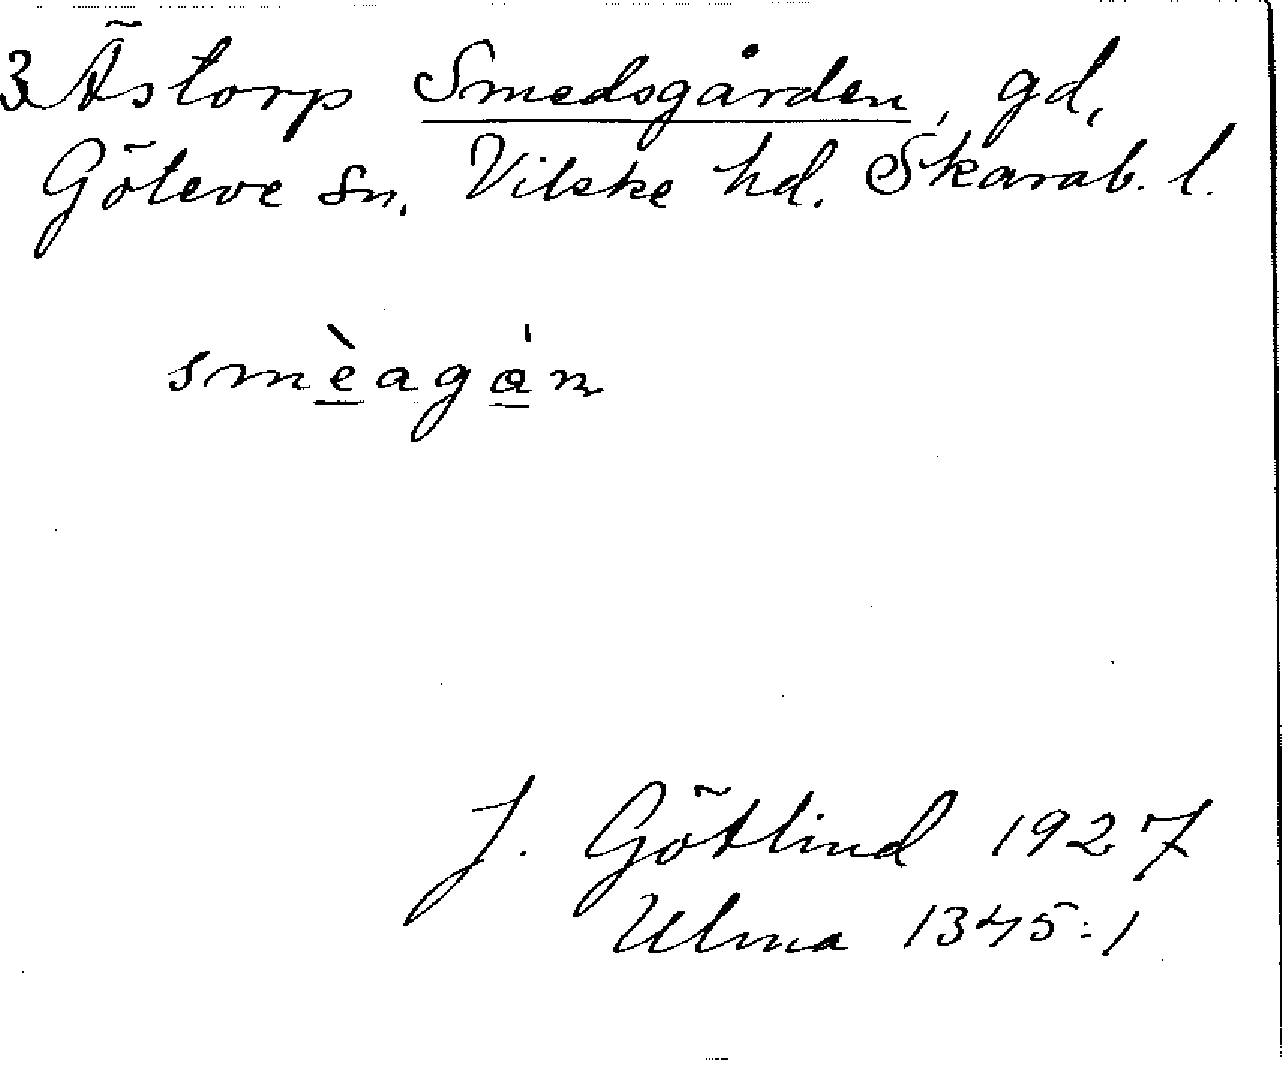 3 Ästorp Smedsgården, gd,
Göteve sn. Vilske hd. Skarab. l.
smèagán
J. Götlind 1927
Ulma 1345:1